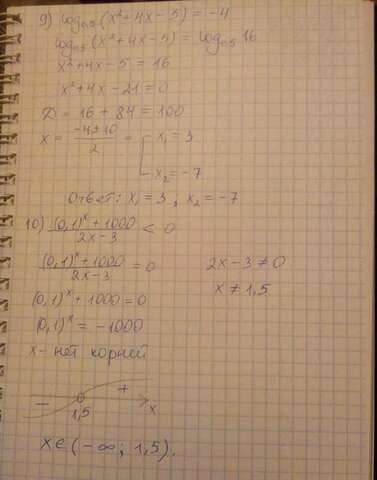 9) log₀,₅(x²+4x-5) = -4
log₀,₅(x²+4x-5) = log₀,₅ 16
x²+4x-5 = 16
x²+4x-21=0
D = 16 + 84 = 100
x = (-4±10)/2 = [ x₁ = 3
x₂ = -7
Ответ: x₁ = 3 ; x₂ = -7
10) ((0,1)ˣ + 1000)/(2x-3) < 0
((0,1)ˣ + 1000)/(2x-3) = 0 2x-3 ≠ 0
(0,1)ˣ + 1000 = 0 x ≠ 1,5
(0,1)ˣ = -1000
x - нет корней
- +
1,5 x
x ∈ (-∞; 1,5).